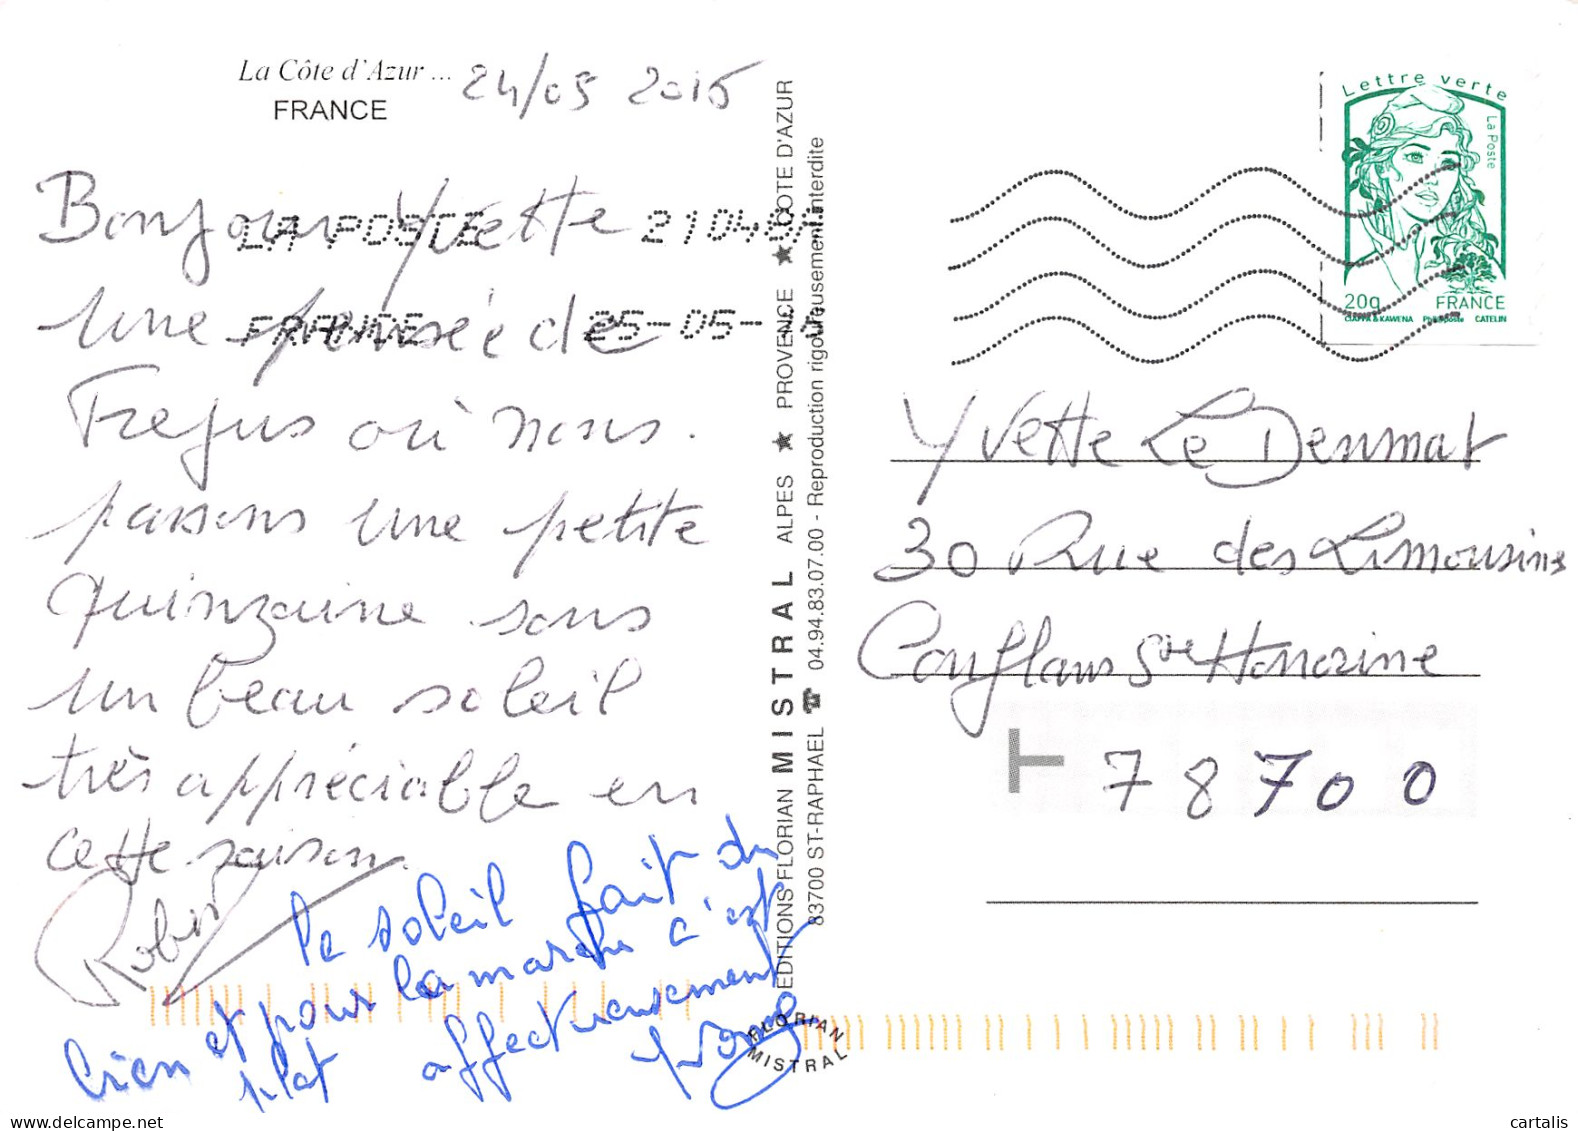 La Côte d'Azur ...
FRANCE
24/05 2015
Bonjour Yvette
une pensée de
Frejus où nous
passons une petite
quinzaine sous
un beau soleil
très appréciable en
cette saison.
Robert
le soleil fait du
bien et pour la marche c'est
plat affectueusement
Yvonne
LA POSTE
FRANCE 25-05-15
EDITIONS FLORIAN MISTRAL ALPES ★ PROVENCE ★ COTE D'AZUR
83700 ST-RAPHAEL ☎ 04.94.83.07.00 - Reproduction rigoureusement interdite
FLORIAN
MISTRAL
Lettre verte
La Poste
20g FRANCE
CIAPPA & KAWENA Phil@poste CATELIN
Yvette Le Denmat
30 Rue des Limousines
Conflans Ste Honorine
78700
cartalis